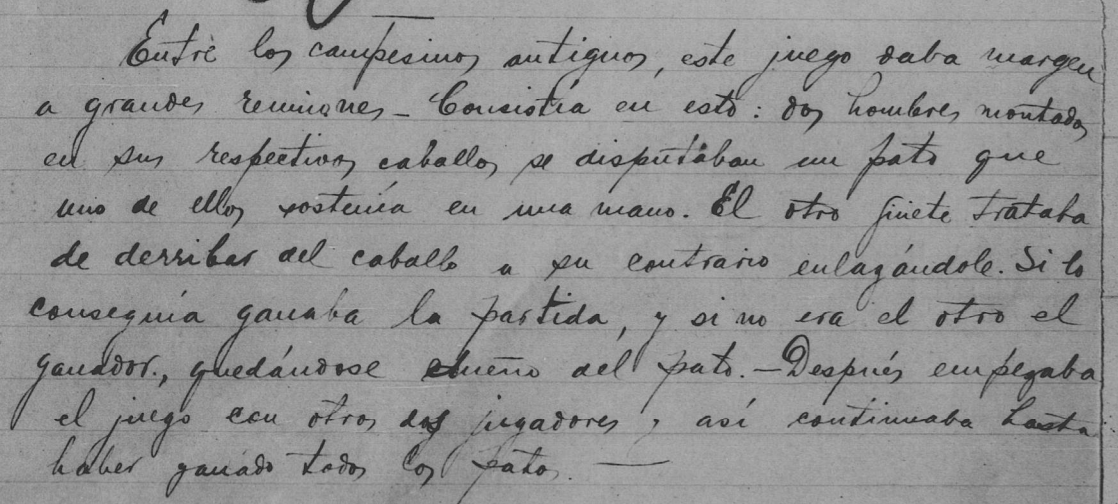 Entre los campesinos antiguos, este juego daba margen
a grandes reuniones – Consistía en esto: dos hombres montados
en sus respectivos caballos se disputaban un pato que
uno de ellos sostenía en una mano. El otro jinete trataba
de derribar del caballo a su contrario enlazándole. Si lo
conseguía ganaba la partida, y si no era el otro el
ganador., quedándose dueño del pato. – Después empezaba
el juego con otros dos jugadores y así continuaba hasta
haber ganado todos los patos. —